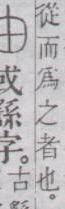 從而爲之者也。
由或繇字。古